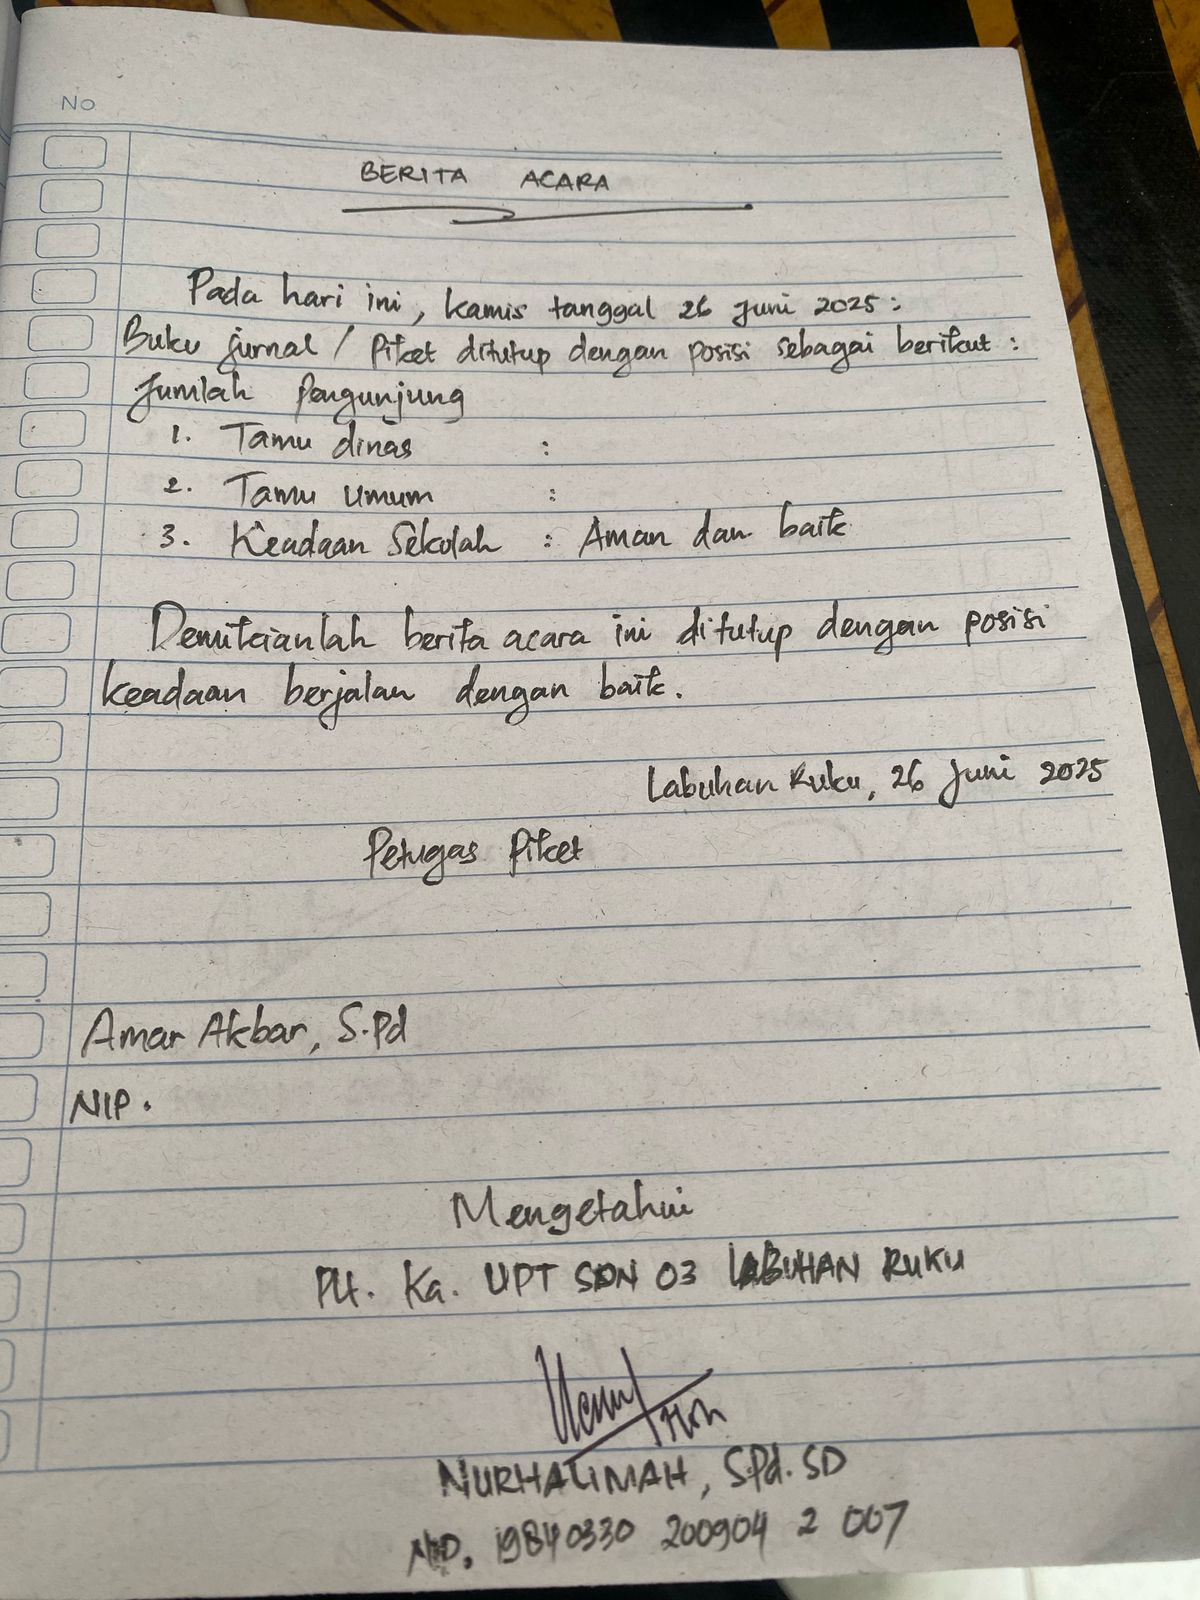 No
BERITA ACARA
Pada hari ini, Kamis tanggal 26 Juni 2025:
Buku jurnal / Piket ditutup dengan posisi sebagai berikut :
Jumlah Pengunjung
1. Tamu dinas :
2. Tamu Umum :
3. Keadaan Sekolah : Aman dan baik
Demikianlah berita acara ini ditutup dengan posisi
keadaan berjalan dengan baik.
Labuhan Ruku, 26 Juni 2025
Petugas Piket
Amar Akbar, S.Pd
NIP.
Mengetahui
Plt. Ka. UPT SDN 03 LABUHAN RUKU
NURHALIMAH, SPd.SD
NIP. 19840330 200904 2 007